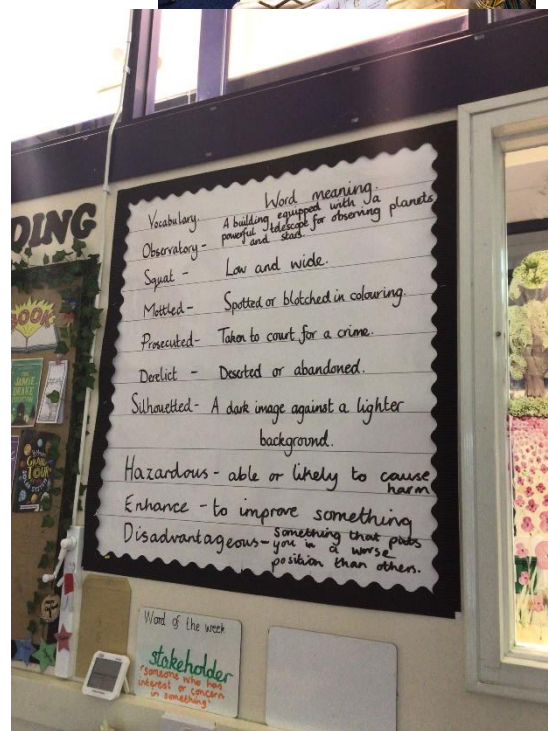 DING
BOOK
THE
JAMIE
DRAKE
GRAND
TOUR
Vocabulary. Word meaning.
Observatory - A building equipped with a
powerful telescope for observing planets
and stars.
Squat - Low and wide.
Mottled - Spotted or blotched in colouring.
Prosecuted - Taken to court for a crime.
Derelict - Deserted or abandoned.
Silhouetted - A dark image against a lighter
background.
Hazardous - able or likely to cause
harm
Enhance - to improve something
Disadvantageous - something that puts
you in a worse
position than others.
Word of the week
stakeholder
"someone who has
interest or concern
in something"